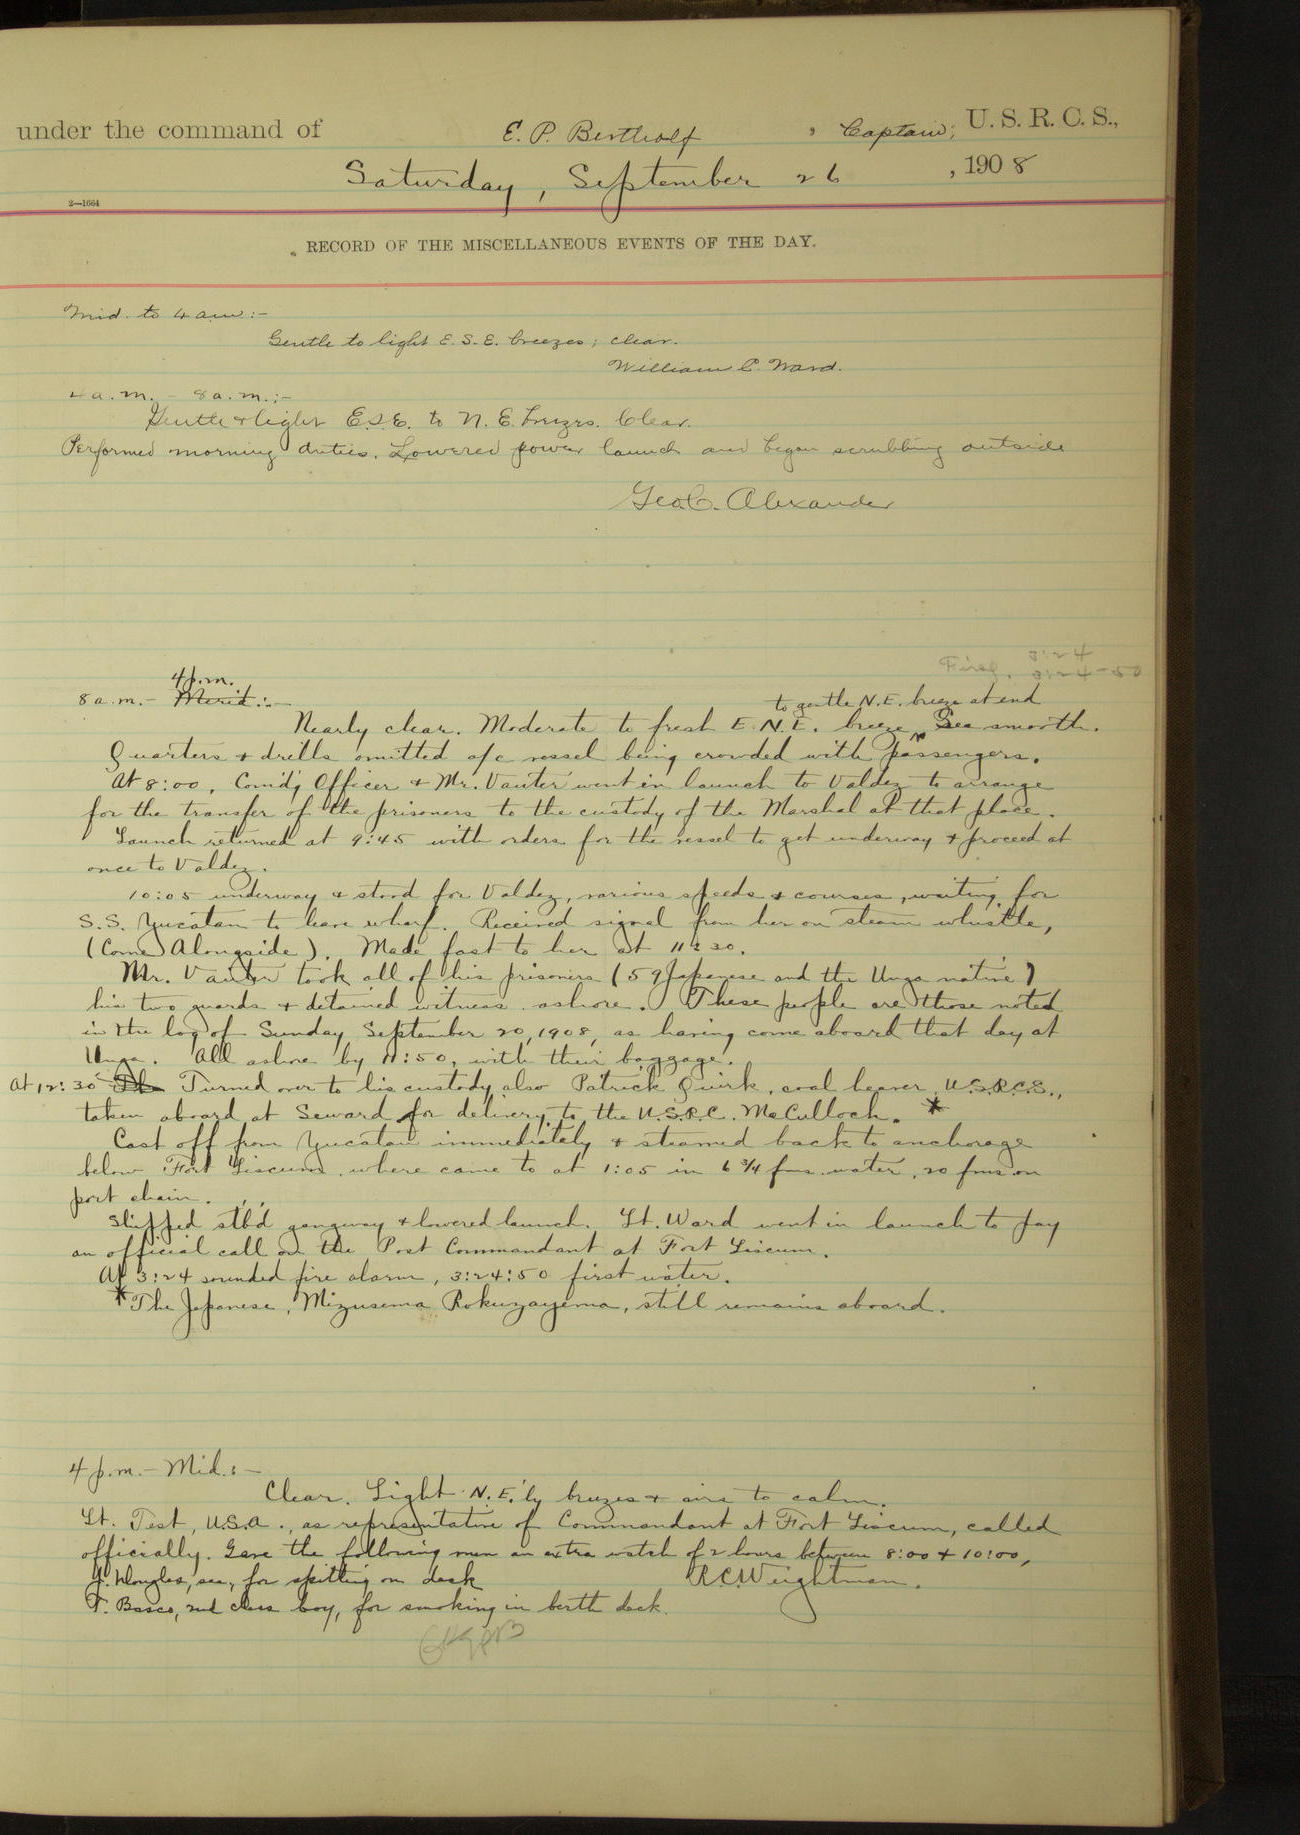 under the command of E. P. Bertholf, Captain, U. S. R. C. S.,
Saturday, September 26, 1908
2—1664
RECORD OF THE MISCELLANEOUS EVENTS OF THE DAY.
Mid. to 4 am:-
Gentle to light E. S. E. breezes; clear.
William C. Ward.
4 a.m. - 8 a.m.:-
Gentle & light E.S.E. to N. E. breezes. Clear.
Performed morning duties. Lowered power launch and began scrubbing outside
Geo. C. Alexander
3:24
Fire 3:24-50
4 p.m.
8 a.m.- Merid:-
to gentle N.E. breeze at end
Nearly clear. Moderate to fresh E. N. E. breeze ^ Sea smooth.
Quarters & drills omitted a/c vessel being crowded with passengers.
At 8:00, Com'd'g Officer & Mr. Vauter went in launch to Valdez to arrange
for the transfer of the prisoners to the custody of the Marshal at that place.
Launch returned at 9:45 with orders for the vessel to get underway & proceed at
once to Valdez.
10:05 underway & stood for Valdez, various speeds & courses, waiting for
S.S. Yucatan to leave wharf. Received signal from her on steam whistle,
(Come Alongside). Made fast to her at 11:30.
Mr. Vauter took all of his prisoners (59 Japanese and the Unga native)
his two guards & detained witness ashore. These people are those noted
in the log of Sunday September 20, 1908, as having come aboard that day at
Unga. All ashore by 11:50, with their baggage.
At 12:30 Turned over to his custody also Patrick Quirk, coal heaver, U.S.R.C.S.,
taken aboard at Seward for delivery to the U.S.R.C. McCulloch. *
Cast off from Yucatan immediately & steamed back to anchorage
below Fort Liscum, where came to at 1:05 in 6 3/4 fms. water, 20 fms on
port chain.
Shipped stb'd gangway & lowered launch. Lt. Ward went in launch to pay
an official call on the Post Commandant at Fort Liscum.
At 3:24 sounded fire alarm, 3:24:50 first water.
* The Japanese, Mizusema Rokuzayema, still remains aboard.
4 p.m. - Mid.:-
Clear. Light N.E.'ly breezes & airs to calm.
Lt. Test, U.S.A., as representative of Commandant at Fort Liscum, called
officially. Gave the following men an extra watch of 2 hours between 8:00 & 10:00,
J. Douglas, sea, for spitting on deck
R.C. Weightman.
F. Basco, 2nd class boy, for smoking in berth deck.